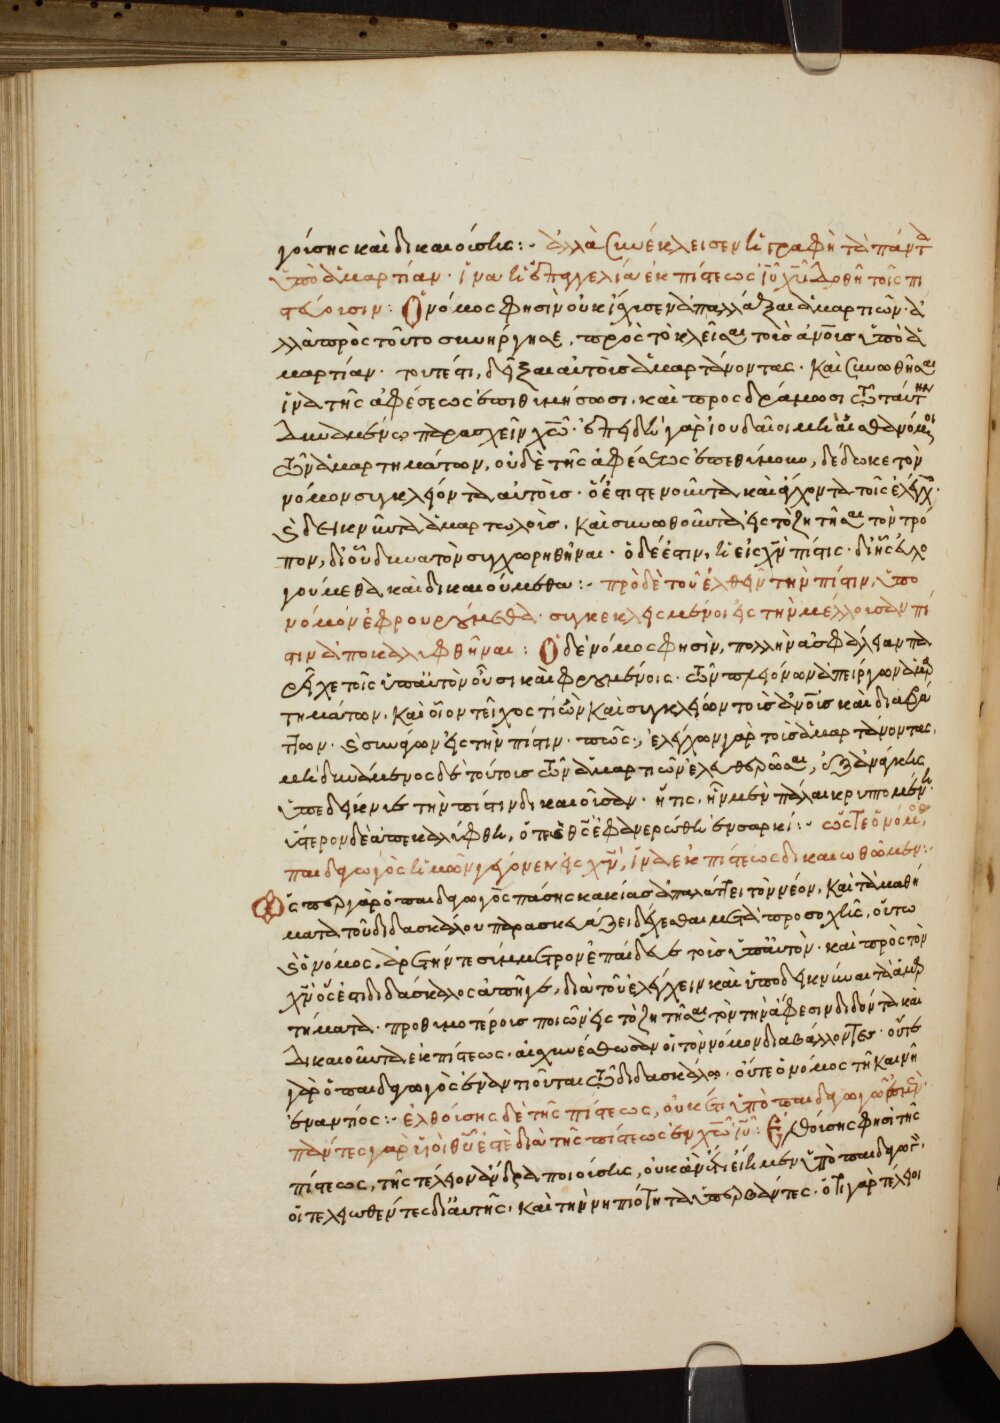 γούσης καὶ δικαιούσης:- ἀλλὰ συνέκλεισεν ἡ γραφὴ τὰ πάντα
ὑπὸ ἁμαρτίαν· ἵνα ἡ ἐπαγγελία ἐκ πίστεως ἰῦ χῦ δοθῆ τοῖς πι
στεύουσιν: Ὁ νόμος φησὶν οὐκ ἴσχυσεν ἀπαλλάξαι ἁμαρτιῶν· ἀ
λλὰ πρὸς τοῦτο συνήργησε, πρὸς τὸ κλεῖσαι τοὺς ἀνοῦς ὑπὸ ἁ
μαρτίαν· τουτέστι, δεῖξαι αὐτοὺς ἁμαρτάνοντας. καὶ συνωθῆσαι
ἵνα τῆς ἀφέσεως ἐπιθυμήσωσι, καὶ προσδράμωσι τῶ ταύτην
δυναμένω παρασχεῖν χῶ· ἐπειδὴ γὰρ ἰουδαῖοι μὴ αἰσθανόμενοι
τῶν ἁμαρτημάτων, οὐδὲ τῆς ἀφέσεως ἐπεθύμουν, δέδωκε τὸν
νόμον συγκλείοντα αὐτοὺς· ὅ ἐστι στενοῦντα καὶ ἄγχοντα τοῖς ἐλέγχοις·
καὶ δεικνῦντα ἁμαρτωλοὺς, καὶ συνωθοῦντα εἰς τὸ ζητῆσαι τὸν τρό
πον, δι' οὗ δυνατὸν συγχωρηθῆναι· ὁ δέ ἐστιν, ἡ εἰς χν πίστις· δι' ἧς εὐλο
γούμεθα καὶ δικαιούμεθα:- πρὸ δὲ τοῦ ἐλθεῖν τὴν πίστιν, ὑπο
νόμον ἐφρουρούμεθα· συγκεκλεισμένοι εἰς τὴν μέλλουσαν πί
στιν ἀποκαλυφθῆναι: Ὁ δὲ νόμος φησὶν, πολλὴν ἀσφάλειαν πα
ρεῖχε τοῖς ὑπ' αὐτὸν οὖσι καὶ φρουρουμένοις·
τημάτων, καὶ οἷον τεῖχος τι ὢν καὶ συγκλείων τοὺς ἀνοῦς καὶ
καὶ συνάγων εἰς τὴν πίστιν· πῶς; ἐλέγχων γὰρ τοὺς ἁμαρτάνοντας,
μὴ δυνάμενος δὲ τούτους τῶν ἁμαρτιῶν ἐλευθερῶσαι, ἐξ ἀνάγκης
ὑπεδείκνυε τὴν πίστιν δικαιοῦσαν· ἥτις, ἦν μὲν πάλαι κρυπτομένη
ὕστερον δὲ ἀπεκαλύφθη, ὅτε ὁ θς ἐφανερώθη ἐν σαρκί:- ὥστε ὁ νόμος
παιδαγωγὸς ἡμῶν γέγονεν εἰς χν, ἵνα ἐκ πίστεως δικαιωθῶμεν:-
Ὥσπερ γὰρ ὁ παιδαγωγὸς πάσης κακίας ἀπαλάττει τὸν νέον, καὶ τὰ μαθή
ματα τοῦ διδασκάλου παρασκευάζει δέχεσθαι μετὰ προσοχῆς, οὕτω
καὶ ὁ νόμος. ἀρετήν τε σύμμετρον ἐπαίδευε τοὺς ὑπ' αὐτὸν· καὶ πρὸς τὸν
χν ὅς ἐστι διδάσκαλος ἀπῆγε, διὰ τοῦ ἐλέγχειν καὶ ὑποδεικνύναι τὰ ἁμαρ
τήματα· προθυμοτέρους ποιῶν εἰς τὸ ζητῆσαι τὸν τὴν ἄφεσιν διδόντα καὶ
δικαιοῦντα ἐκ πίστεως· αἰσχυνέσθωσαν οἱ τὸν νόμον διαβάλλοντες· οὔτε
γὰρ ὁ παιδαγωγὸς ἐναντιοῦται τῶ διδασκάλω· οὔτε ὁ νόμος τῆ καινῆ
ἐναντίος:- ἐλθούσης δὲ τῆς πίστεως, οὐκ ἔτι ὑπὸ παιδαγωγόν ἐσμεν·
πάντες γὰρ υἱοὶ θῦ ἐστὲ διὰ τῆς πίστεως ἐν χῶ ἰῦ: Ἐλθούσης φησὶ τῆς
πίστεως, τῆς τέλειον ἄνδρα ποιούσης, οὐκ ἂν ἔτι εἴημεν ὑπὸ παιδαγωγόν·
οἱ τελειωθέντες δι' αὐτῆς, καὶ τὴν νηπιότητα ὑπερβάντες· ὅτι γὰρ τέλειοι